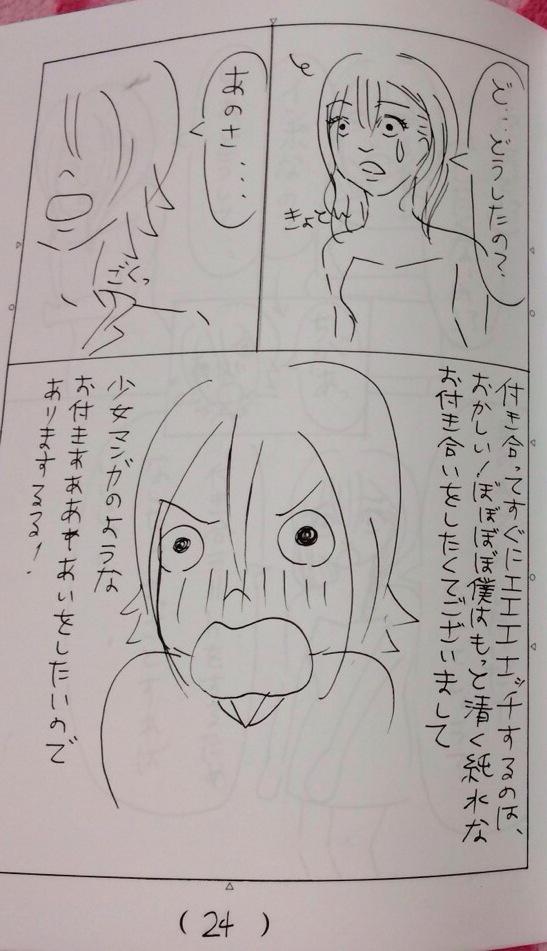 ど…どうしたの?
きょとん
あのさ…
ごくっ
付き合ってすぐにエエエエッチするのは、
おかしい!ぼぼぼぼ僕はもっと清く純水な
お付き合いをしたくてございまして
少女マンガのような
お付きあああああいをしたいので
ありまするる!
(24)